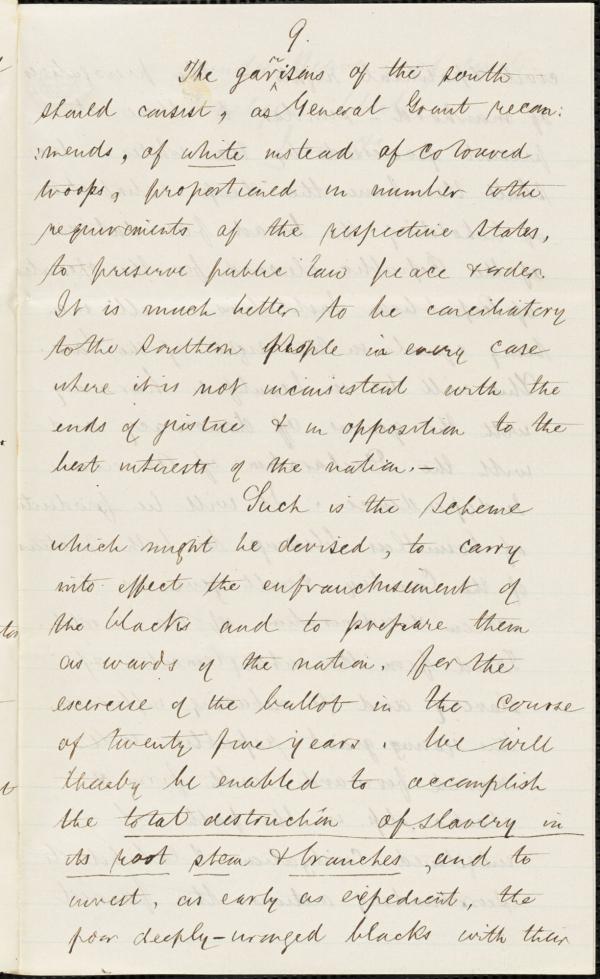 9.
The garrisons of the south
should consist, as General Grant recom:
:mends, of white instead of coloured
troops, proportioned in number to the
requirements of the respective States,
to preserve public law peace & order.
It is much better to be conciliatory
to the Southern people in every case
where it is not inconsistent with the
ends of justice & in opposition to the
best interests of the nation.—
Such is the scheme
which might be devised, to carry
into effect the enfranchisement of
the blacks and to prepare them
as wards of the nation. for the
excercise of the ballot in the course
of twenty five years. We will
thereby be enabled to accomplish
the total destruction of slavery in
its root stem & branches, and to
invest, as early as expedient, the
poor deeply-wronged blacks with their